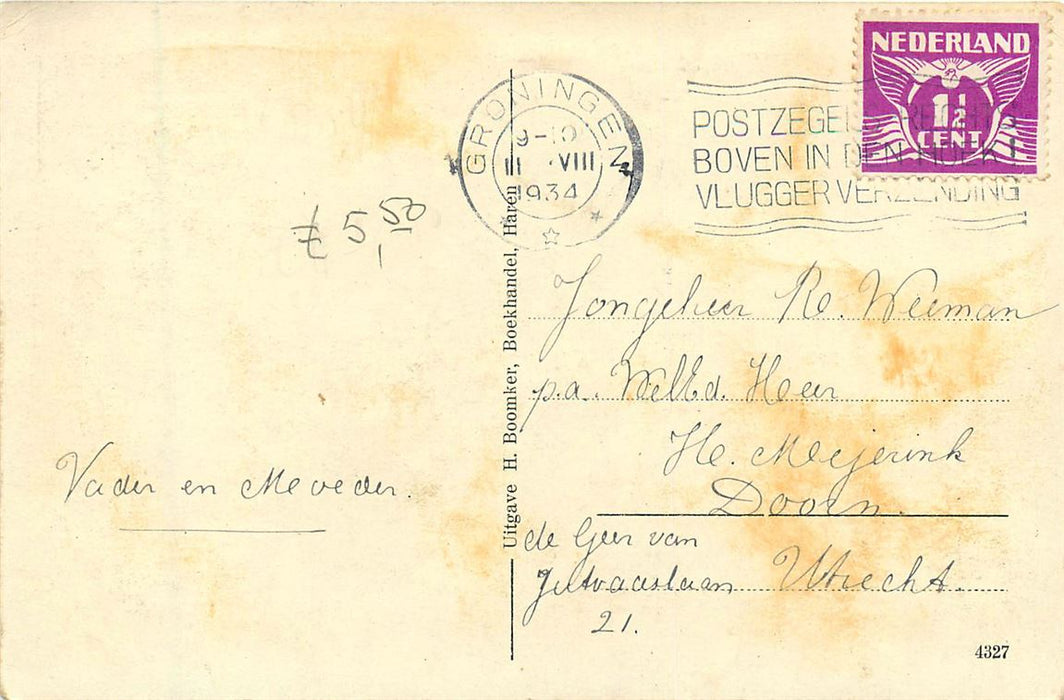 NEDERLAND
1½
CENT
GRONINGEN
9-10
VIII
1934
POSTZEGELS RECHTS
BOVEN IN DEN HOEK!
VLUGGER VERZENDING
5,50
Jongeheer R. Weeman
p.a. WelEd. Heer
H. Meijerink
Doorn.
de Geer van
Jutvaaslaan Utrecht.
21.
Vader en Moeder.
Uitgave H. Boomker, Boekhandel, Haren
4327